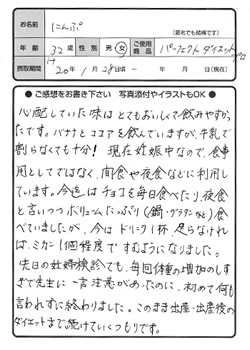 お名前
にんぷ
(匿名でも結構です)
年齢 32歳 性別 男・女 ご使用商品 パーフェクトダイエットプロ
摂取期間 H20年1月28日頃~ 年 月 日 (現在)
●ご感想をお書き下さい 写真添付やイラストもOK●
心配していた味はとてもおいしくて飲みやすかっ
たです。バナナとココアを飲んでいますが、牛乳で
割らなくても十分! 現在妊娠中なので、食事
用としてではなく、間食や夜食などに利用
しています。今迄はチョコを毎日食べたり、夜食
と言いつつボリュムたっぷり(鍋・グラタンなど)食
べていましたが、今はドリンク1杯、足らなけれ
ば、ミカン1個程度ですむようになりました。
先日の妊婦検診でも、毎回体重の増加のしす
ぎで先生に一言注意があったのに、初めて何も
言われずに終わりました。このまま出産・出産後の
ダイエットまで続けていくつもりです。